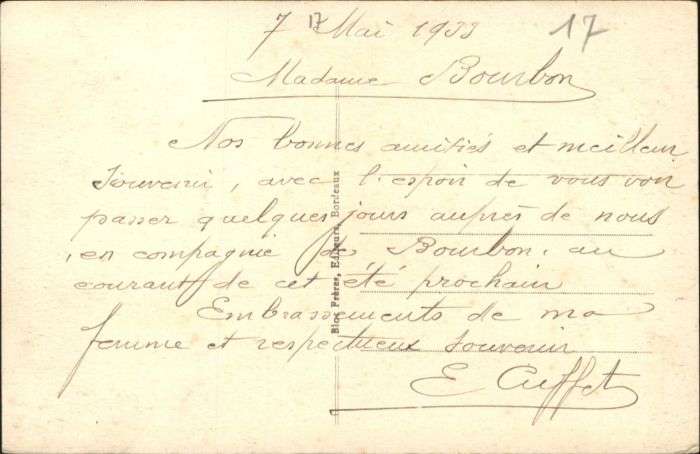 7 Mai 1933
17
17
Madame Bourbon
Nos bonnes amitiés et meilleur
Souvenir, avec l'espoir de vous voir
passer quelques jours auprès de nous
en compagnie de Bourbon, au
courant de cet été prochain
Embrassements de ma
femme et respectueux souvenir
E
Bloc Frères, Editeurs, Bordeaux